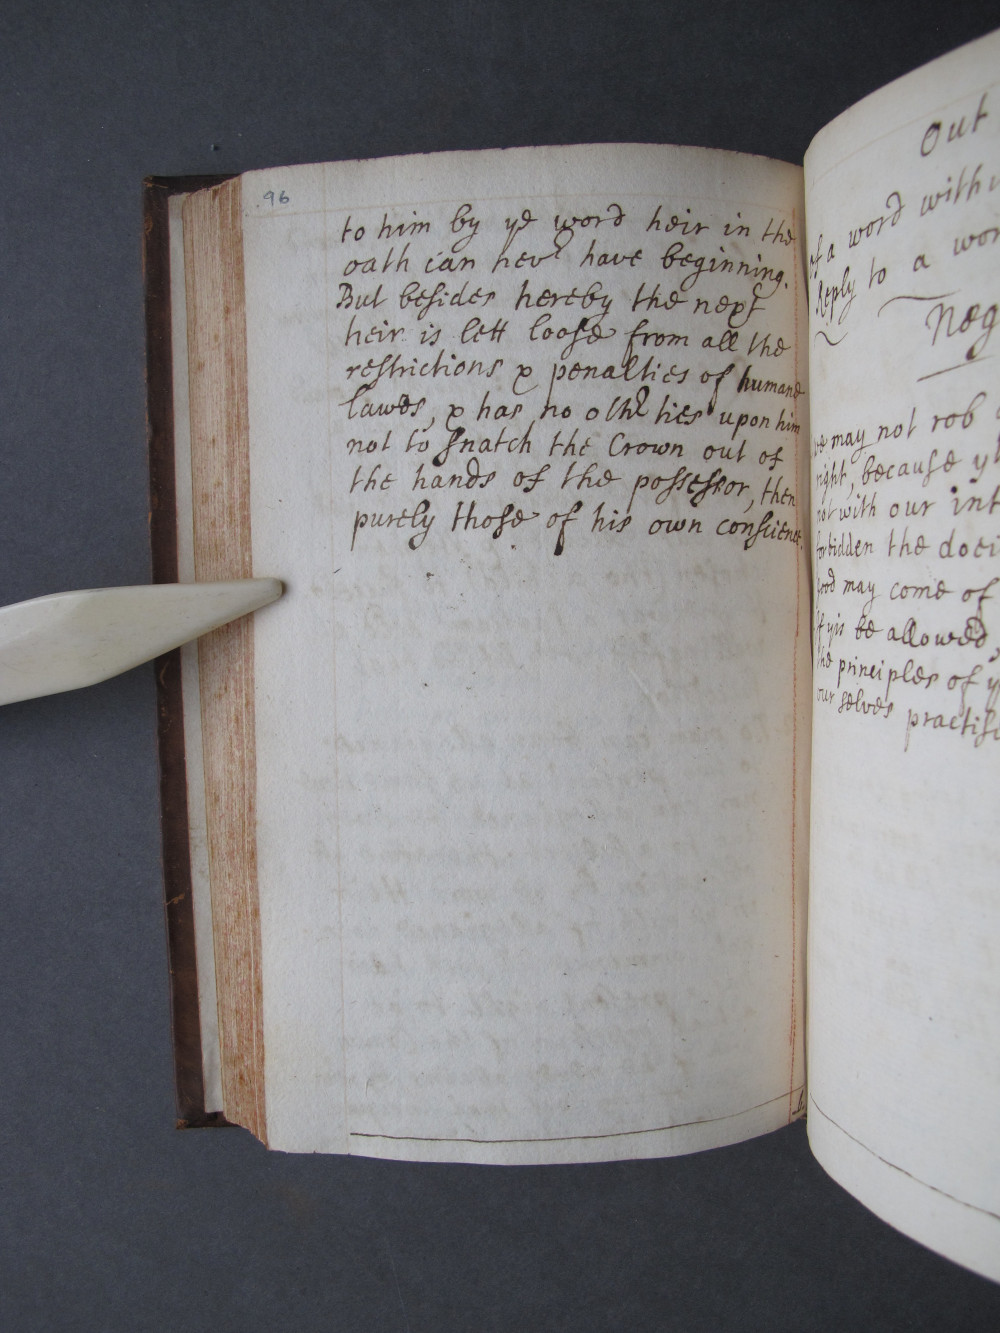 96
to him by ye word heir in the
oath can nevr have beginning.
But besides hereby the next
heir is lett loose from all the
restrictions & penalties of humane
lawes, & has no othr ties upon him
not to snatch the Crown out of
the hands of the possessor, then
purely those of his own conscience.
Out
of a word with
Reply to a wor
Neg
we may not rob
right, because y
not with our int
forbidden the doei
good may come of
If yis be allowed,
the principles of y
our selves practis